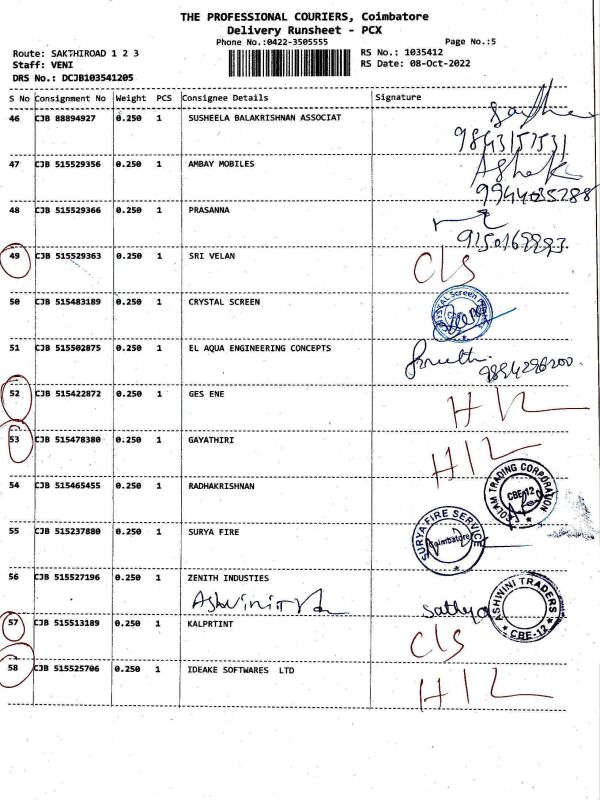 THE PROFESSIONAL COURIERS, Coimbatore
Delivery Runsheet - PCX
Phone No.:0422-3505555 Page No.:5
Route: SAKTHIROAD 1 2 3 RS No.: 1035412
Staff: VENI RS Date: 08-Oct-2022
DRS No.: DCJB103541205
S No Consignment No Weight PCS Consignee Details Signature
46 CJB 88894927 0.250 1 SUSHEELA BALAKRISHNAN ASSOCIAT
9843157531
47 CJB 515529356 0.250 1 AMBAY MOBILES
Ashok
9944035288
48 CJB 515529366 0.250 1 PRASANNA
49 CJB 515529363 0.250 1 SRI VELAN C/S
50 CJB 515483189 0.250 1 CRYSTAL SCREEN
CRYSTAL Screen
51 CJB 515502875 0.250 1 EL AQUA ENGINEERING CONCEPTS
Sruthi
52 CJB 515422872 0.250 1 GES ENE
53 CJB 515478380 0.250 1 GAYATHIRI
54 CJB 515465455 0.250 1 RADHAKRISHNAN
TRADING CORPORATION
CBE-12
55 CJB 515237880 0.250 1 SURYA FIRE
SURYA FIRE SERVICE
Coimbatore
56 CJB 515527196 0.250 1 ZENITH INDUSTIES
Sathya
ASHWINI TRADERS
CBE-12
57 CJB 515513189 0.250 1 KALPRTINT C/S
58 CJB 515525706 0.250 1 IDEAKE SOFTWARES LTD